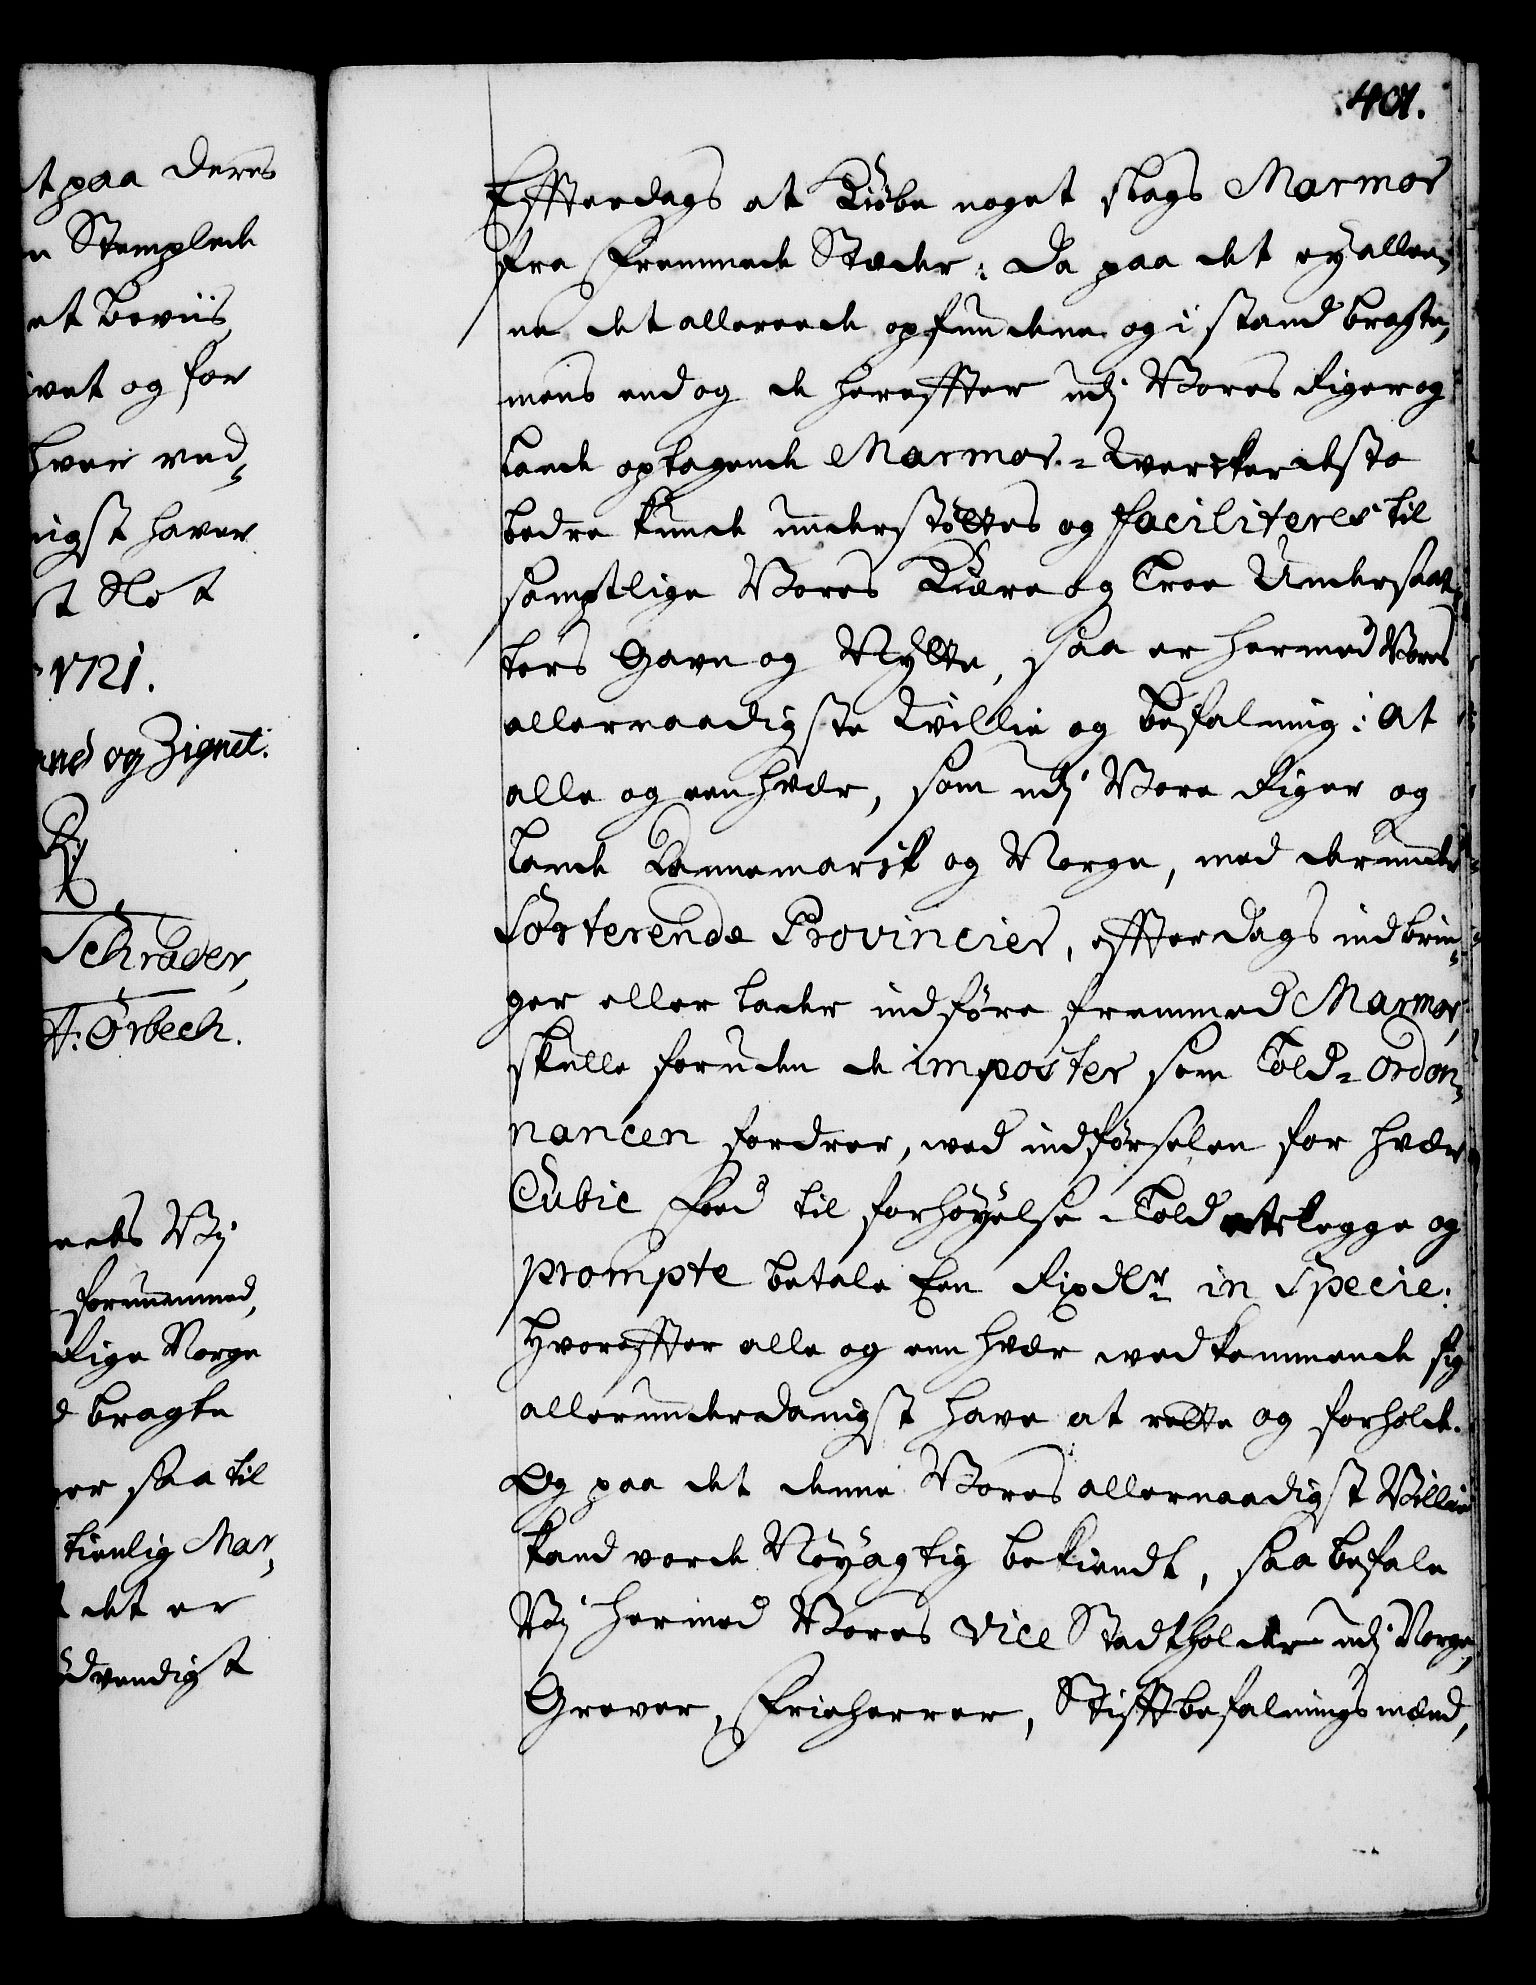 t paa deres
n Stemplede
et beviis
ivet og for
hver ved-
nigst haver
t Slot
1721.
and og Zignet.
R.
Schrader,
A: Ørbech.
ects Vij
forunemmed,
Rige Norge
d bragte
er saa til
tienlig Mar-
t det er
ødvendigst
401.
Effterdags at Kiøbe noget slags Marmor
fra Fremmede Stæder; Da paa det ey alle-
ne det allereede opfundene og i stand bragte,
mens end og de hereffter udj Vores Riger og
Lande optagende Marmor-Werker desto
bedre kunde understøttes og faciliteres til
samptlige Vores Kiære og Troe Undersaat-
ters Gavn og Nytte, saa er hermed Vores
allernaadigste Willie og befalning: At
alle og een hver, som udj Vore Riger og
Lande Dannemark og Norge, med derunder
Sorterende Provincier, effterdags indbrin-
ger eller lader indføre fremmed Marmor,
skulle foruden de imposter som Told-Ordon-
nancen fordrer, wed indførselen for hver
Cubic Foed til forhøyelse i Told erlegge og
prompte betale Een Rixdlr in Specie.
Hvoreffter alle og een hver wedkommende sig
allerunderdanigst have at rette og forholde.
Og paa det denne Vores allernaadigst Villie
kand vorde Nøyagtig bekiendt, saa befale
Vij hermed Vores Vice Stadtholder udj Norge,
Grever, Frieherrer, Stifftbefalningsmænd,